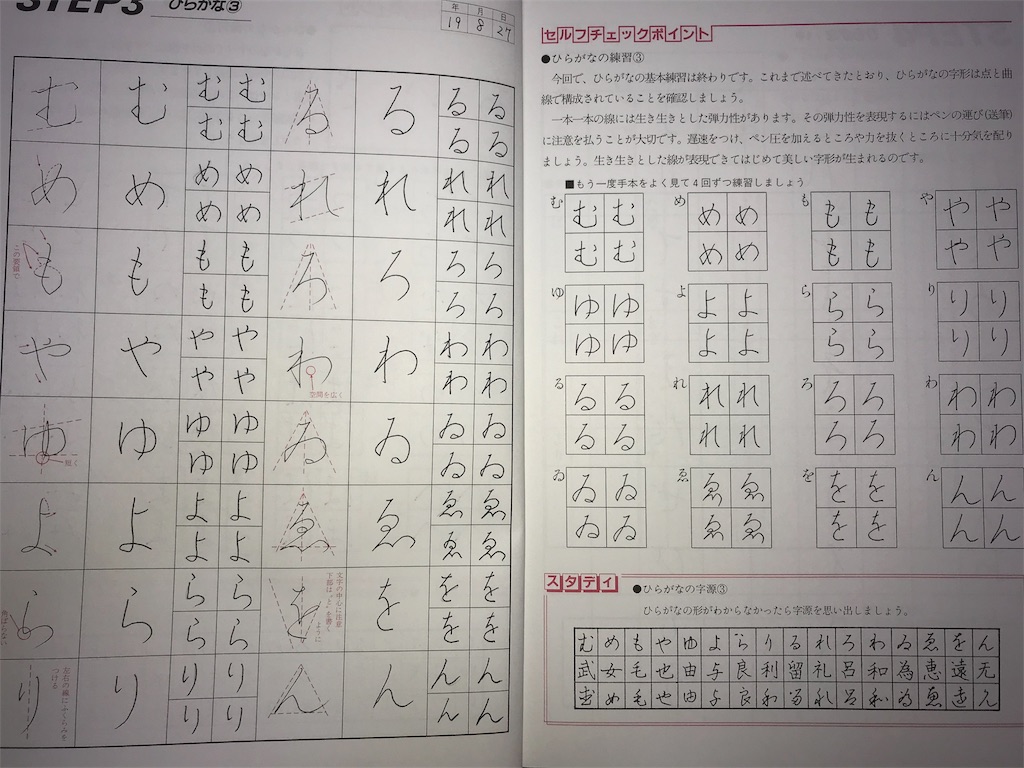 STEP3 ひらがな③
年 月 日
19 8 27
む む む む む む
め め め め め め
も も も も も も
この要領で
や や や や や や
ゆ ゆ ゆ ゆ ゆ ゆ
短く
よ よ よ よ よ よ
ら ら ら ら ら ら
り り り り り り
左右の線にふくらみを
つける
る る る る る る
れ れ れ れ れ れ
ろ ろ ろ ろ ろ ろ
わ わ わ わ わ わ
空間を広く
ゐ ゐ ゐ ゐ ゐ ゐ
ゑ ゑ ゑ ゑ ゑ ゑ
を を を を を を
文字の中心に注意
下部は、「と」を書く
ように
ん ん ん ん ん ん
セルフチェックポイント
●ひらがなの練習③
今回で、ひらがなの基本練習は終わりです。これまで述べてきたとおり、ひらがなの字形は点と曲
線で構成されていることを確認しましょう。
一本一本の線には生き生きとした弾力性があります。その弾力性を表現するにはペンの運び(送筆)
に注意を払うことが大切です。遅速をつけ、ペン圧を加えるところや力を抜くところに十分気を配り
ましょう。生き生きとした線が表現できてはじめて美しい字形が生まれるのです。
■もう一度手本をよく見て4回ずつ練習しましょう
む む む め め め も も も や や や
む む め め も も や や
ゆ ゆ ゆ よ よ よ ら ら ら り り り
ゆ ゆ よ よ ら ら り り
る る る れ れ れ ろ ろ ろ わ わ わ
る る れ れ ろ ろ わ わ
ゐ ゐ ゐ ゑ ゑ ゑ を を を ん ん ん
ゐ ゐ ゑ ゑ を を ん ん
スタディ
●ひらがなの字源③
ひらがなの形がわからなかったら字源を思い出しましょう。
む め も や ゆ よ ら り る れ ろ わ ゐ ゑ を ん
武 女 毛 也 由 与 良 利 留 礼 呂 和 為 恵 遠 无